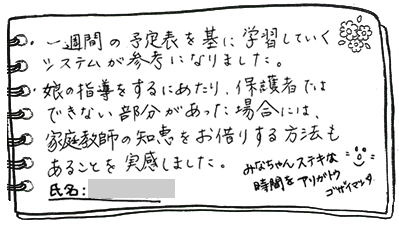 ・一週間の予定表を基に学習していく
システムが参考になりました。
・娘の指導をするにあたり、保護者では
できない部分があった場合には、
家庭教師の知恵をお借りする方法も
あることを実感しました。
みなちゃんステキな
時間をアリガトウ
ゴザイマシタ
氏名: